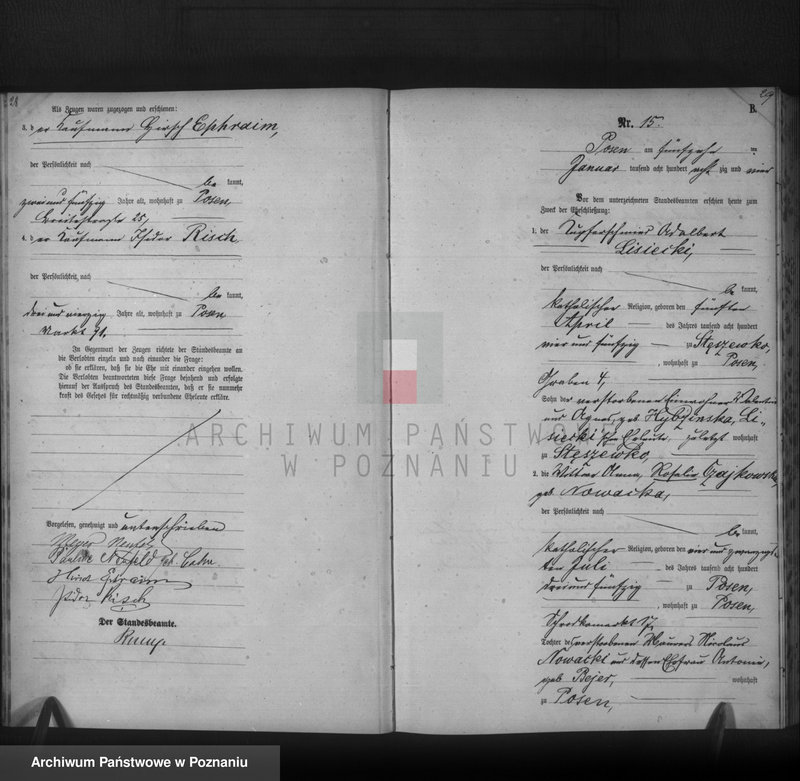 28
Als Zeugen waren zugezogen und erschienen:
3. der Kaufmann Hirsch Ephraim,
der Persönlichkeit nach
be kannt,
zweiundfünfzig Jahre alt, wohnhaft zu Posen,
Breitestraße 25,
4. der Kaufmann Isidor Risch
der Persönlichkeit nach
be kannt,
dreiundvierzig Jahre alt, wohnhaft zu Posen
Markt 91.
In Gegenwart der Zeugen richtete der Standesbeamte an
die Verlobten einzeln und nach einander die Frage:
ob sie erklären, daß sie die Ehe mit einander eingehen wollen.
Die Verlobten beantworteten diese Frage bejahend und erfolgte
hierauf der Ausspruch des Standesbeamten, daß er sie nunmehr
kraft des Gesetzes für rechtmäßig verbundene Eheleute erkläre.
Vorgelesen, genehmigt und unterschrieben
Pauline geb. Cohn
Hirsch Ephraim
Isidor Risch
Der Standesbeamte.
Rump
29
B.
Nr. 15.
Posen am fünfzehn ten
Januar tausend acht hundert acht zig und vier
Vor dem unterzeichneten Standesbeamten erschien heute zum
Zweck der Eheschließung:
1. der Kupferschmied Adalbert
Lisiecki,
der Persönlichkeit nach
be kannt,
katholischer Religion, geboren den fünften
April des Jahres tausend acht hundert
vier und fünfzig zu Stęszewko,
, wohnhaft zu Posen,
Graben 4,
Sohn der verstorbenen Einwohner Valentin
und Agnes, geb. Li-
siecki'schen Eheleute, zuletzt wohnhaft
zu Stęszewko
2. die Wittwe Rosalie Czajkowska,
geb. Nowacka,
der Persönlichkeit nach
be kannt,
katholischer Religion, geboren den vier und zwanzigs-
ten Juli des Jahres tausend acht hundert
drei und fünfzig zu Posen,
, wohnhaft zu Posen,
Schrodkamarkt
Tochter des verstorbenen Maurers Nicolaus
Nowacki und dessen Ehefrau Antonie,
geb. Bejer, wohnhaft
zu Posen,
ARCHIWUM PAŃSTWOWE
W POZNANIU
Archiwum Państwowe w Poznaniu